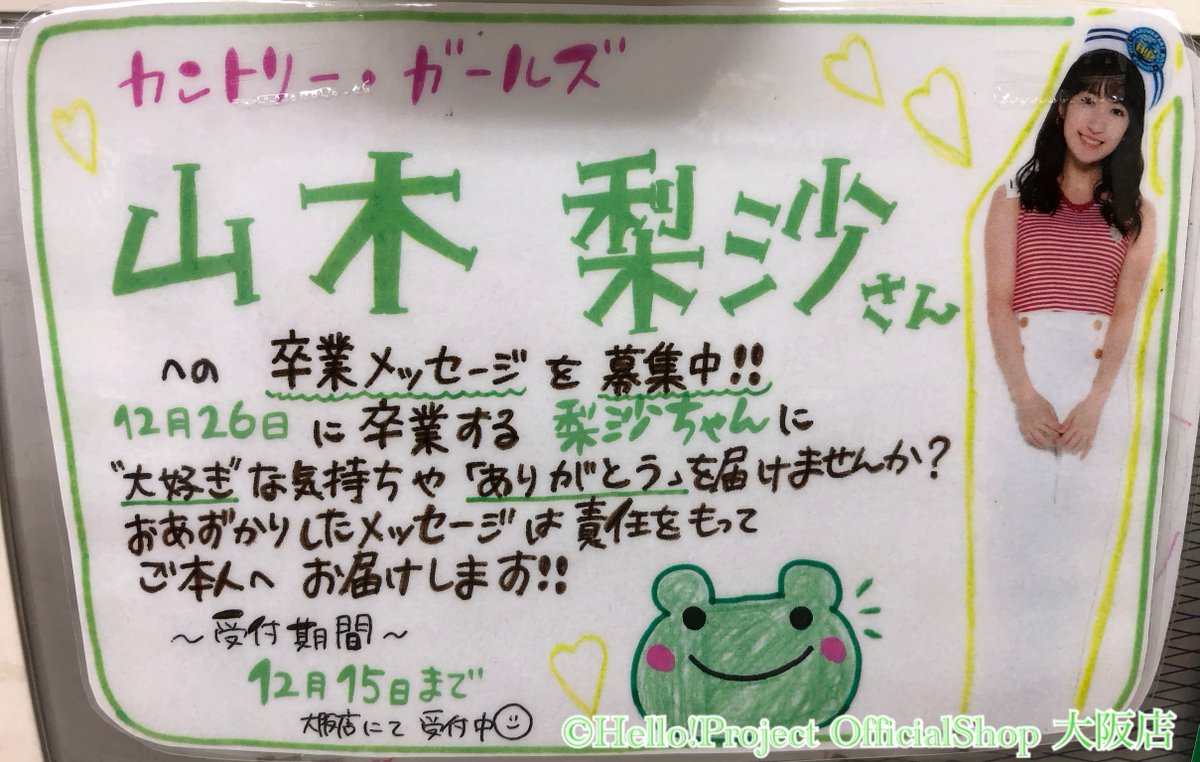 カントリー・ガールズ
山木 梨沙さん
への 卒業メッセージを募集中!!
12月26日に卒業する 梨沙ちゃんに
"大好き"な気持ちや「ありがとう」を届けませんか?
おあずかりしたメッセージは責任をもって
ご本人へ お届けします!!
~受付期間~
12月15日まで
大阪店にて 受付中
©Hello!Project OfficialShop 大阪店